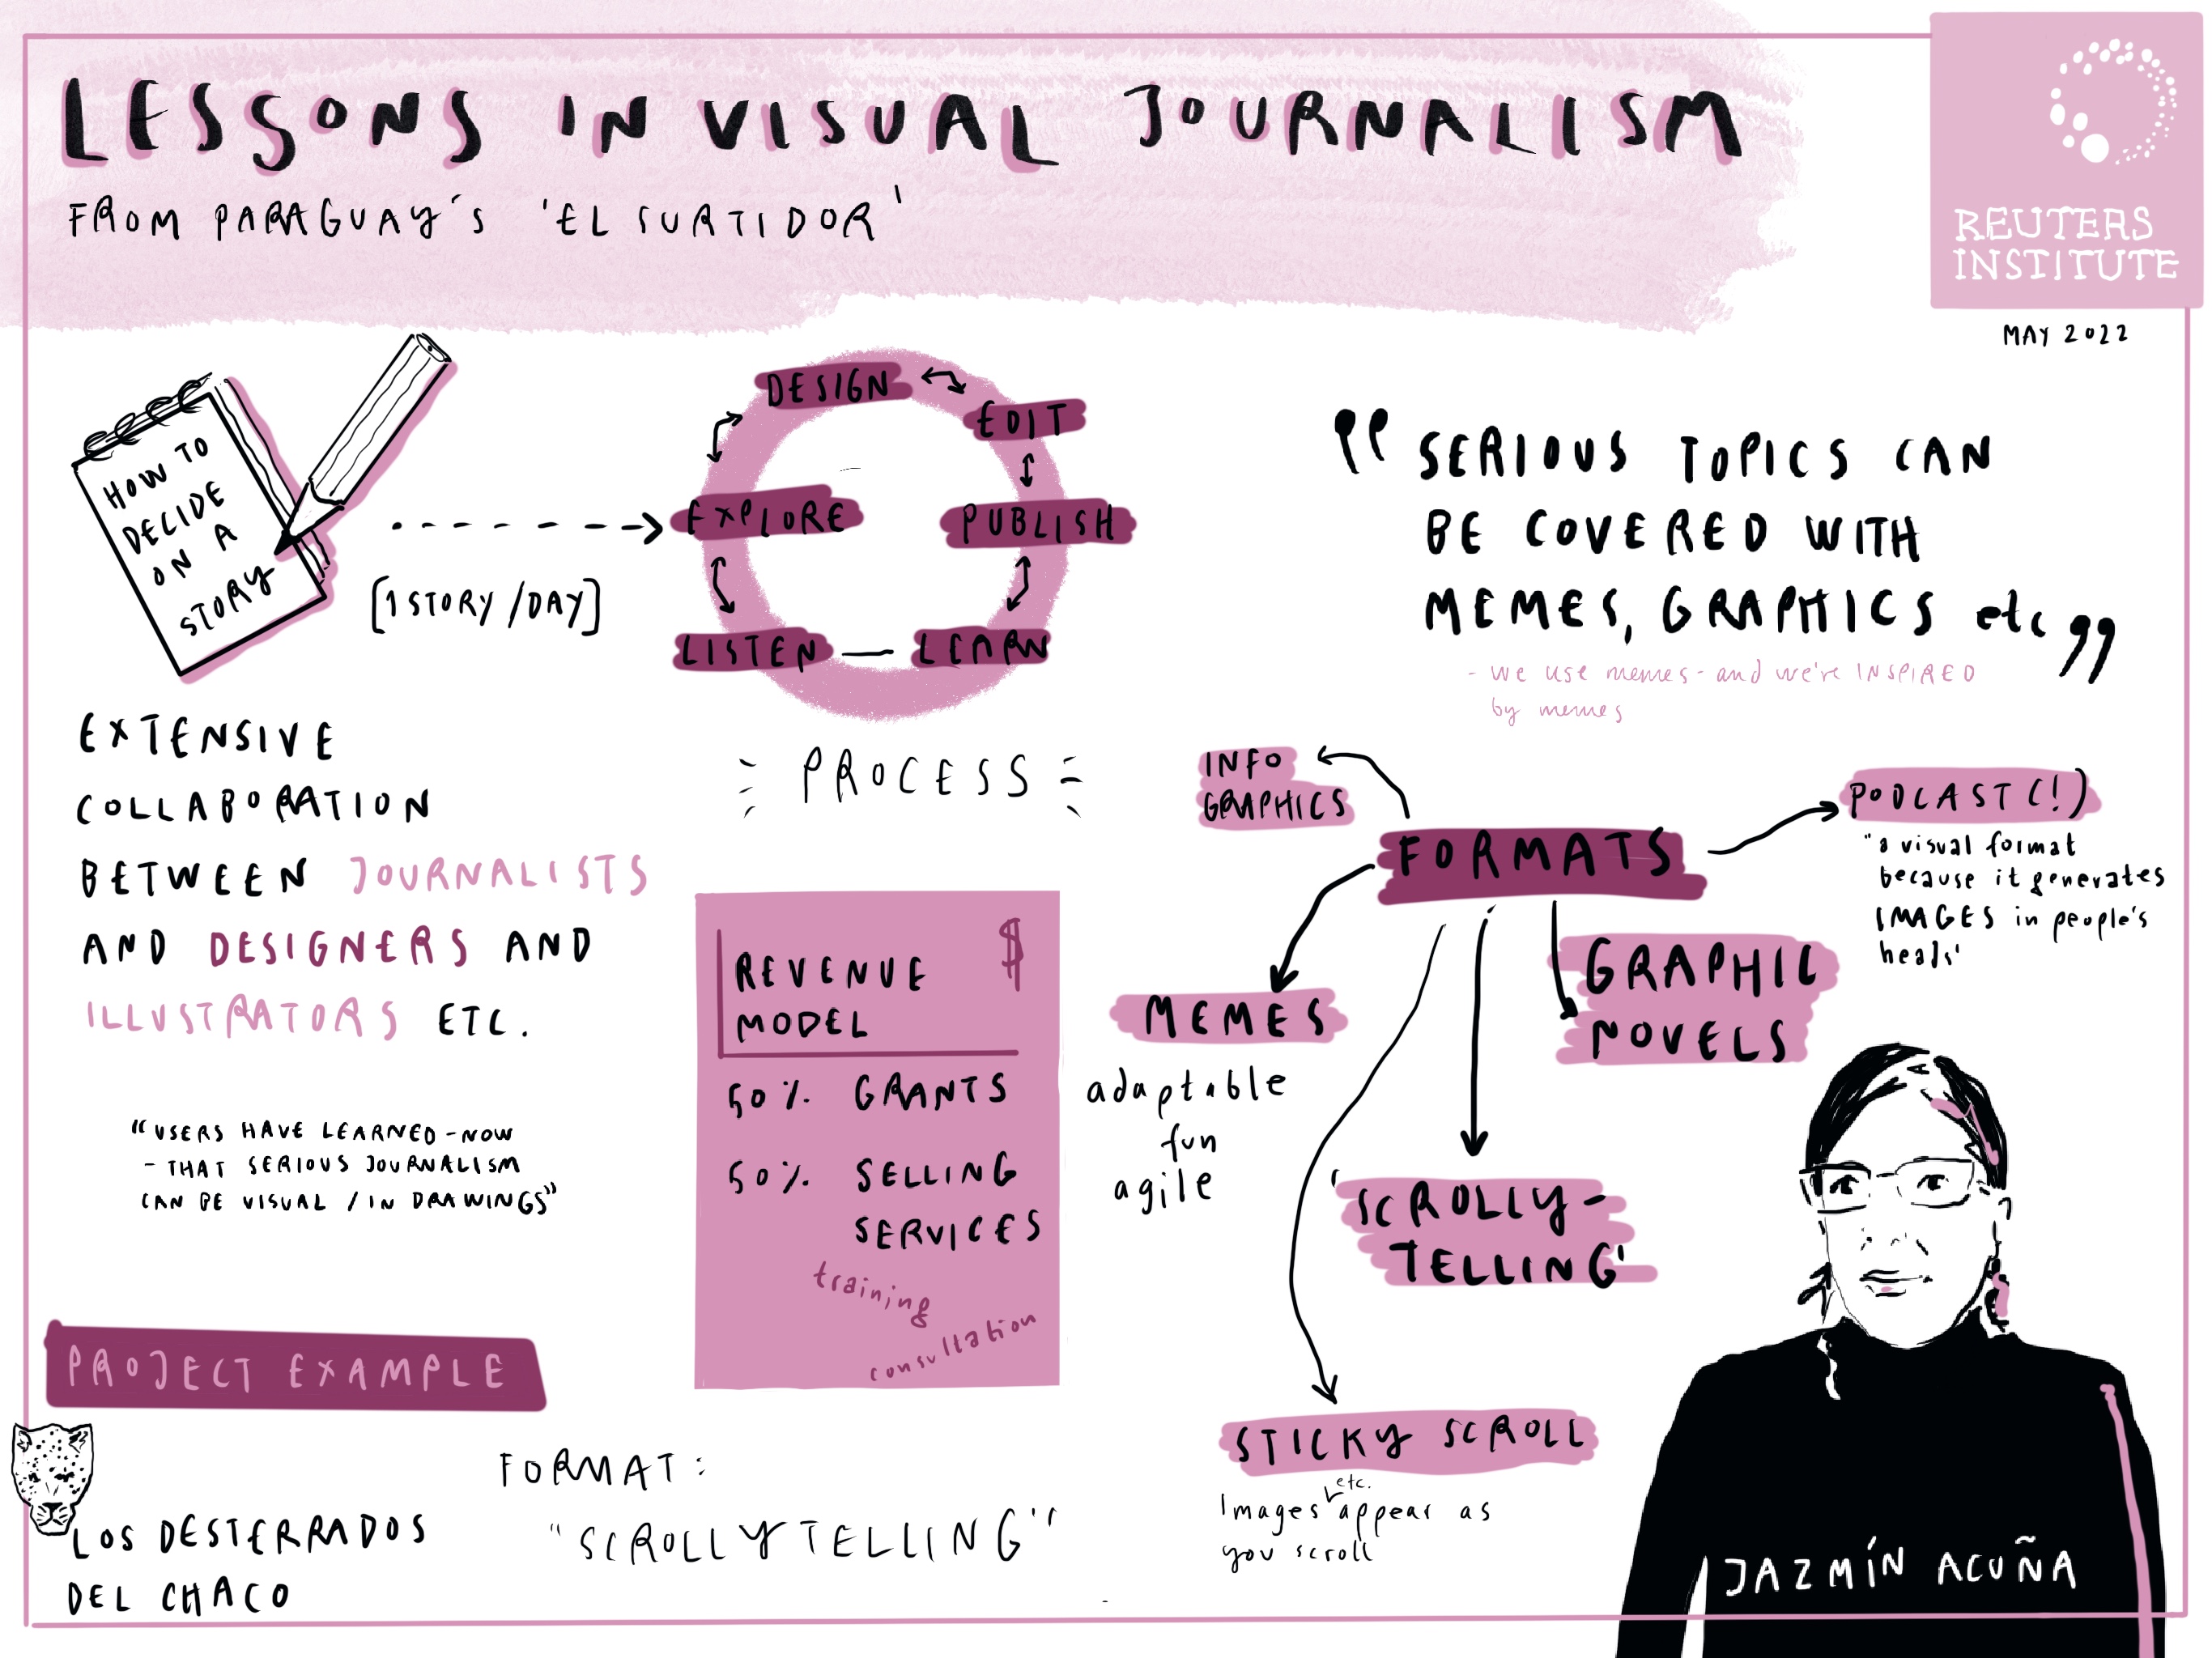 LESSONS IN VISUAL JOURNALISM
FROM PARAGUAY'S 'EL SURTIDOR'
REUTERS
INSTITUTE
MAY 2022
HOW TO
DECIDE
ON A
STORY
[1 STORY/DAY]
DESIGN
EDIT
EXPLORE
PUBLISH
LISTEN
LEARN
PROCESS
"SERIOUS TOPICS CAN
BE COVERED WITH
MEMES, GRAPHICS etc"
- we use memes - and we're INSPIRED
by memes
EXTENSIVE
COLLABORATION
BETWEEN JOURNALISTS
AND DESIGNERS AND
ILLUSTRATORS ETC.
"USERS HAVE LEARNED - NOW
- THAT SERIOUS JOURNALISM
CAN BE VISUAL / IN DRAWINGS"
REVENUE $
MODEL
50% GRANTS
50% SELLING
SERVICES
training
consultation
FORMATS
INFO
GRAPHICS
PODCAST (!)
"a visual format
because it generates
IMAGES in people's
heads'
MEMES
adaptable
fun
agile
GRAPHIC
NOVELS
'SCROLLY-
TELLING'
STICKY SCROLL
etc.
Images appear as
you scroll
PROJECT EXAMPLE
LOS DESTERRADOS
DEL CHACO
FORMAT:
"SCROLLYTELLING"
JAZMÍN ACUÑA